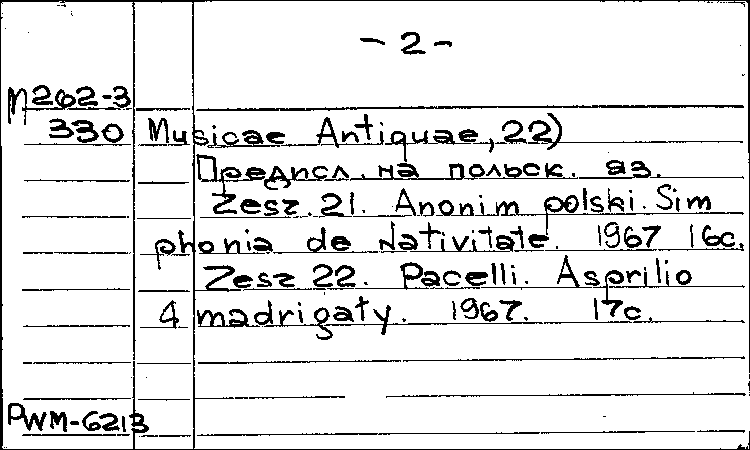 - 2 -
П262-3
330 Musicae Antiquae, 22)
Предисл. на польск. яз.
Zesz. 21. Anonim polski. Sim
phonia de Nativitate. 1967 16c.
Zesz 22. Pacelli. Asprilio
4 madrigaty. 1967. 17c.
PWM-6213